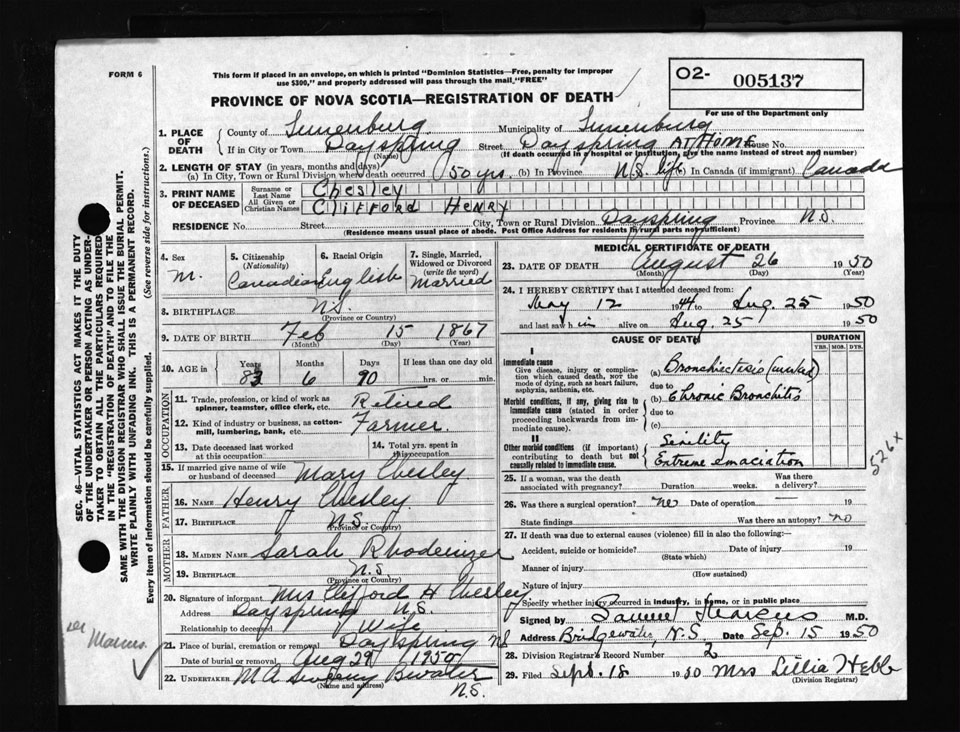 FORM 6
This form if placed in an envelope, on which is printed "Dominion Statistics—Free, penalty for improper
use $300," and properly addressed will pass through the mail, "FREE"
O2- 005137
PROVINCE OF NOVA SCOTIA—REGISTRATION OF DEATH
For use of the Department only
1. PLACE OF DEATH { County of Lunenburg Municipality of Lunenburg
If in City or Town Dayspring Street Dayspring At Home House No.
(Name) (If death occurred in a hospital or institution, give the name instead of street and number)
2. LENGTH OF STAY (in years, months and days)
(a) In City, Town or Rural Division where death occurred 50 yrs. (b) In Province N.S. life (c) In Canada (if immigrant) Canada
3. PRINT NAME OF DECEASED { Surname or Last Name Chesley
All Given or Christian Names Clifford Henry
RESIDENCE No. Street City, Town or Rural Division Dayspring Province N.S.
(Residence means usual place of abode. Post Office Address for Residents in rural parts not sufficient)
4. Sex M.
5. Citizenship (Nationality) Canadian
6. Racial Origin English
7. Single, Married, Widowed or Divorced (write the word) Married
8. BIRTHPLACE N.S.
(Province or Country)
9. DATE OF BIRTH Feb 15 1867
(Month) (Day) (Year)
10. AGE Years 83 Months 6 Days If less than one day old
hrs. or min.
OCCUPATION
11. Trade, profession, or kind of work as spinner, teamster, office clerk, etc. Retired
12. Kind of industry or business, as cotton-mill, lumbering, bank, etc. Farmer.
13. Date deceased last worked at this occupation
14. Total yrs. spent in this occupation
15. If married give name of wife or husband of deceased Mary Chesley
FATHER
16. NAME Henry Chesley
17. BIRTHPLACE N.S.
(Province or Country)
MOTHER
18. MAIDEN NAME Sarah Rhodenizer
19. BIRTHPLACE N.S.
(Province or Country)
20. Signature of informant Mrs Clifford H Chesley
Address Dayspring N.S.
Relationship to deceased Wife
21. Place of burial, cremation or removal Dayspring NS
Date of burial or removal Aug 29 / 1950
22. UNDERTAKER M A Sweeny Bwater
(Name and address) N.S.
MEDICAL CERTIFICATE OF DEATH
23. DATE OF DEATH August 26 1950
(Month) (Day) (Year)
24. I HEREBY CERTIFY that I attended deceased from:
May 12 1944 to Aug. 25 1950
and last saw him alive on Aug. 25 1950
CAUSE OF DEATH
DURATION
YRS. MOS. DYS.
I
Immediate cause
Give disease, injury or complication which caused death, NOT the mode of dying, such as heart failure, asphyxia, asthenia, etc.
(a) Bronchiectasis
due to
Morbid conditions, if any, giving rise to immediate cause (stated in order proceeding backwards from immediate cause).
(b) Chronic Bronchitis
due to
(c)
II
Other morbid conditions (if important) contributing to death but not causally related to immediate cause.
Senility
Extreme emaciation
526x
25. If a woman, was the death associated with pregnancy? Duration weeks. Was there a delivery?
26. Was there a surgical operation? no Date of operation 19
State findings Was there an autopsy? no
27. If death was due to external causes (violence) fill in also the following:
Accident, suicide or homicide? Date of injury 19
(State which)
Manner of injury
(How sustained)
Nature of injury
Specify whether injury occurred in industry, in home, or in public place
Signed by Samuel Marcus M.D.
Address Bridgewater, N.S. Date Sep. 15 1950
28. Division Registrar's Record Number 2
29. Filed Sept. 18 1950 Mrs Lillia Hebb
(Division Registrar)
SEC. 46—VITAL STATISTICS ACT MAKES IT THE DUTY
OF THE UNDERTAKER OR PERSON ACTING AS UNDER-
TAKER TO OBTAIN ALL THE PARTICULARS REQUIRED
IN THE "REGISTRATION OF DEATH" AND TO FILE THE
SAME WITH THE DIVISION REGISTRAR WHO SHALL ISSUE THE BURIAL PERMIT.
WRITE PLAINLY WITH UNFADING INK. THIS IS A PERMANENT RECORD.
Every item of information should be carefully supplied. (See reverse side for instructions.)